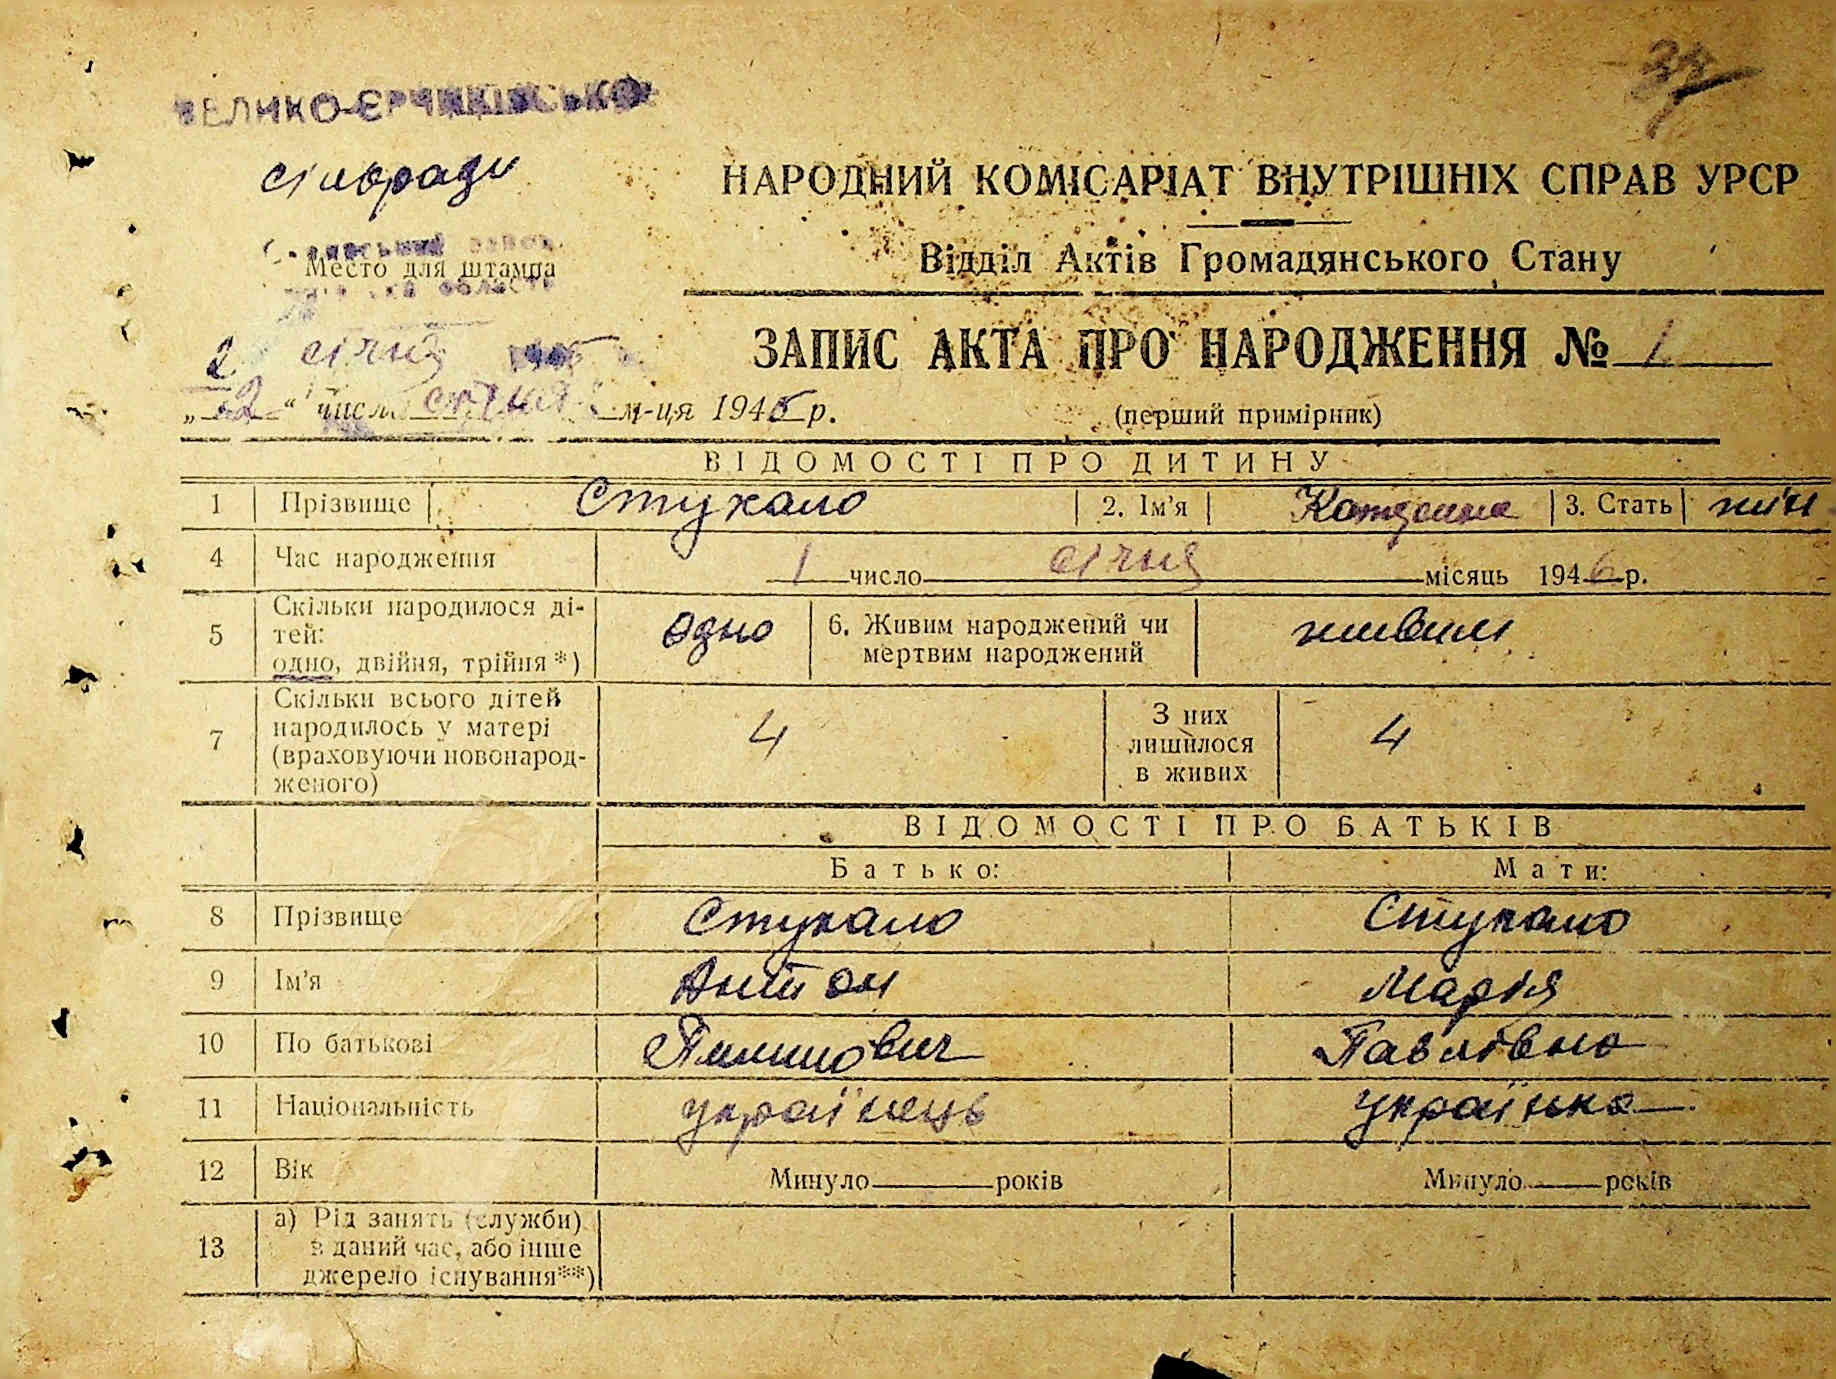 ВЕЛИКО-ЄРЧИКІВСЬКО
сільради
НАРОДНИЙ КОМІСАРІАТ ВНУТРІШНІХ СПРАВ УРСР
Відділ Актів Громадянського Стану
Место для штампа
области
ЗАПИС АКТА ПРО НАРОДЖЕННЯ № 1
2 січня
„ 2 “ числа січня м-ця 1946 р.
(перший примірник)
ВІДОМОСТІ ПРО ДИТИНУ
1 Прізвище Стукало 2. Ім'я Катерина 3. Стать жін
4 Час народження 1 число січня місяць 1946 р.
5 Скільки народилося ді-
тей:
одно, двійня, трійня*) Одно 6. Живим народжений чи
мертвим народжений живим
7 Скільки всього дітей
народилось у матері
(враховуючи новонарод-
женого) 4 З них
лишилося
в живих 4
ВІДОМОСТІ ПРО БАТЬКІВ
Батько: Мати:
8 Прізвище Стукало Стукало
9 Ім'я Антон Марія
10 По батькові Пилипович Павлівна
11 Національність українець українка
12 Вік Минуло років Минуло років
13 а) Рід занять (служби)
в даний час, або інше
джерело існування**)